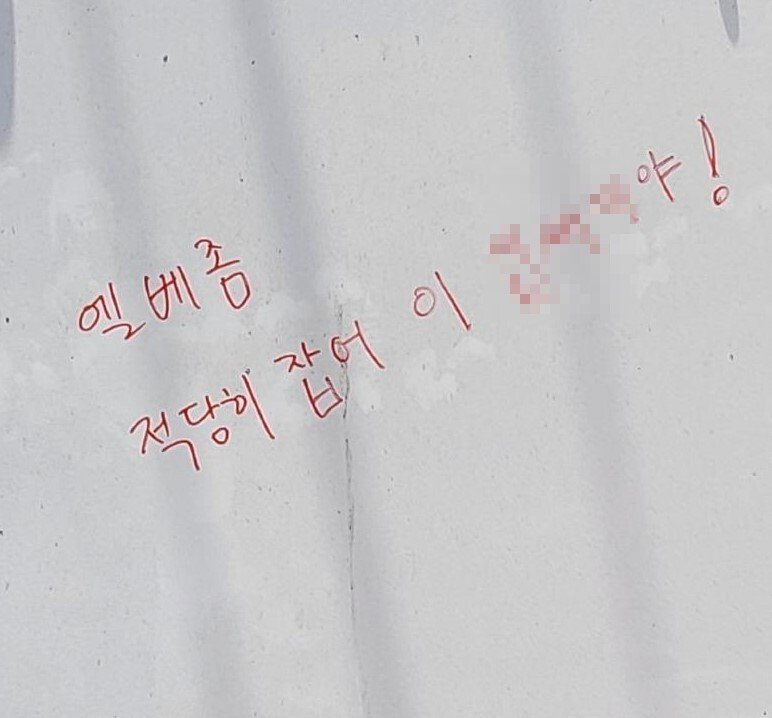 엘베좀
적당히 잡어 이 야!